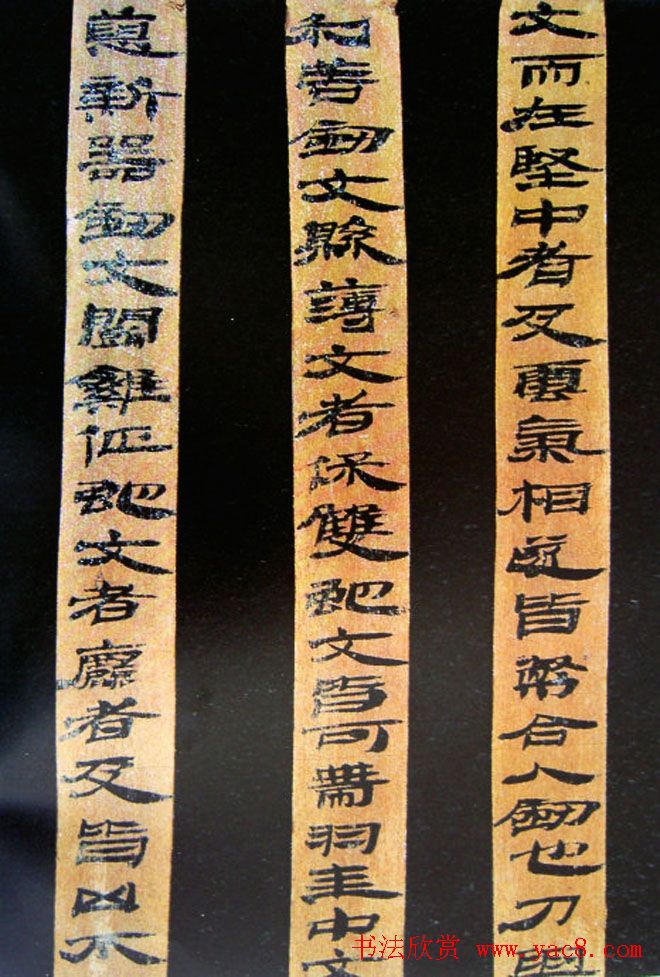 文而在堅中者及雲氣相遂皆幣合人劍也刀與
利善劍文縣薄文者保雙虵文皆可帶羽圭中文
惡新器劍文鬭雞佂虵文者麤者及皆凶不
书法欣赏 www.yac8.com